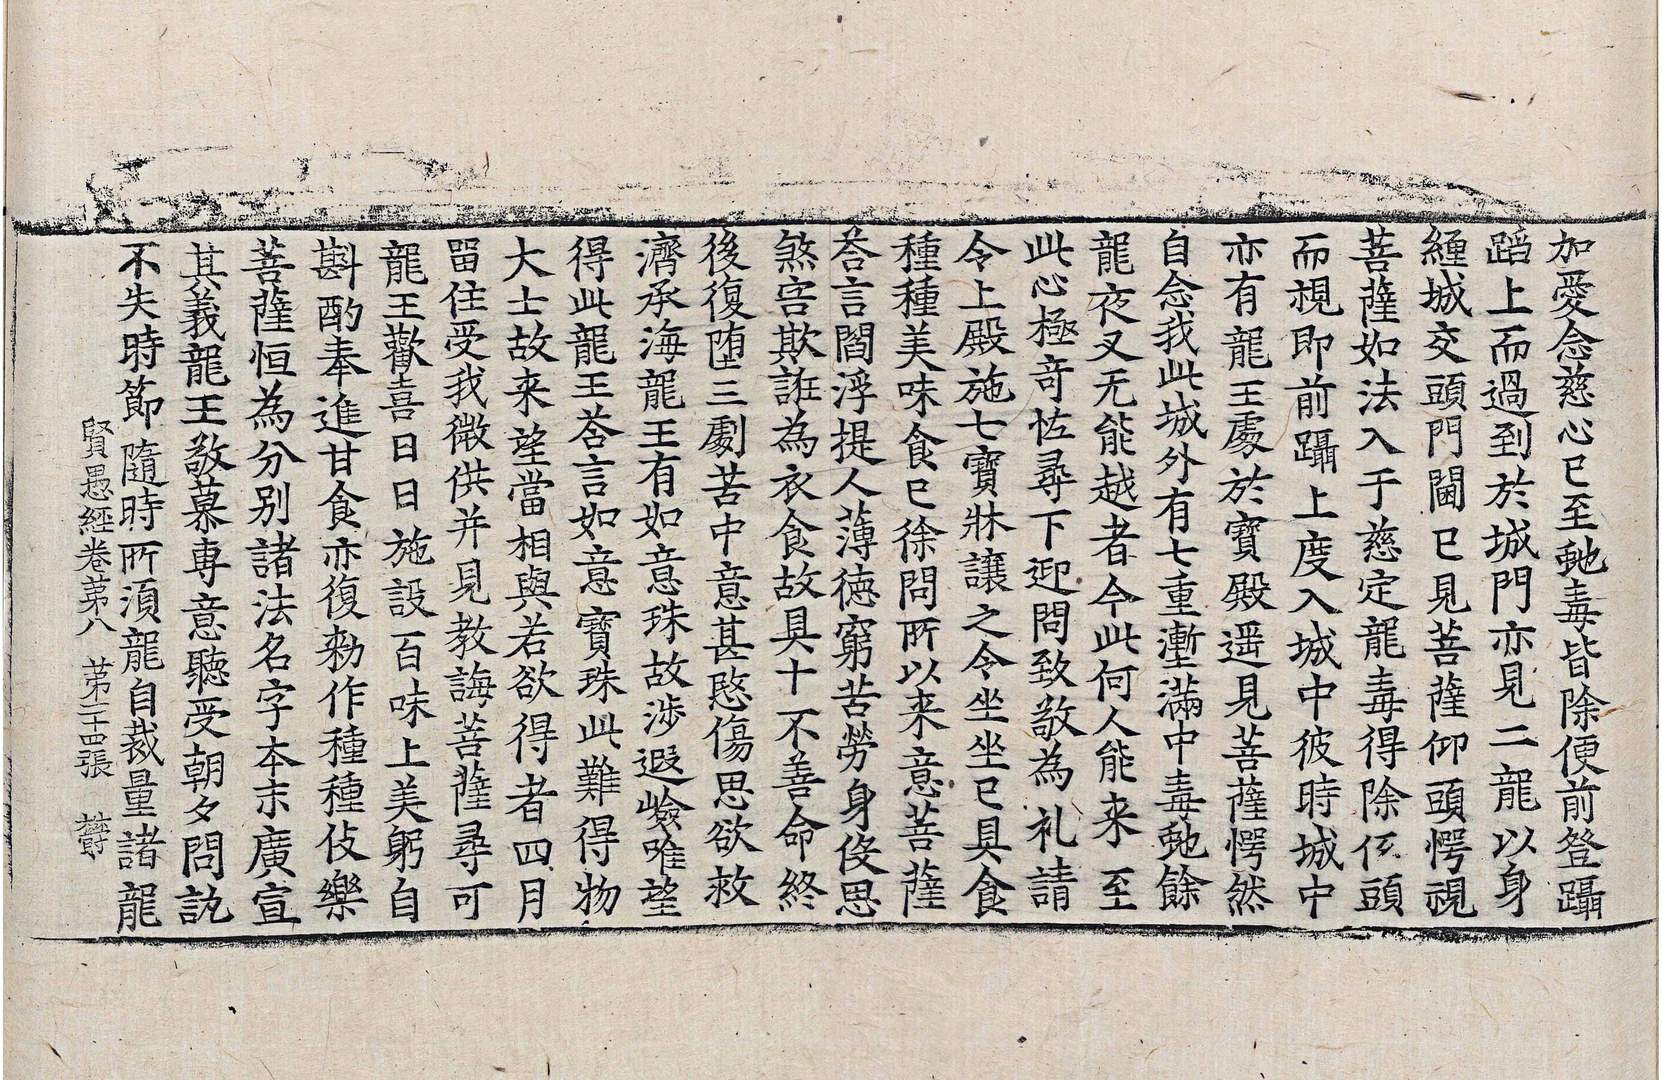 加愛念慈心已至虵毒皆除便前登躡
蹈上而過到於城門亦見二龍以身
纏城交頭門閫已見菩薩仰頭愕視
菩薩如法入于慈定龍毒得除伍頭
而視即前躡上度入城中彼時城中
亦有龍王處於寶殿遥見菩薩愕然
自念我此城外有七重壍滿中毒虵餘
龍夜叉无能越者今此何人能来至
此心極奇恠尋下迎問致敬為礼請
令上殿施七寶牀讓之令坐坐已具食
種種美味食已徐問所以来意菩薩
荅言閻浮提人薄德窮苦勞身役思
煞害欺誑為衣食故具十不善命終
後復堕三劇苦中意甚愍傷思欲救
濟承海龍王有如意珠故涉遐嶮唯望
得此龍王荅言如意寶珠此難得物
大士故来望當相與若欲得者四月
留住受我微供并見教誨菩薩尋可
龍王歡喜日日施設百味上美躬自
斟酌奉進甘食亦復勑作種種伎樂
菩薩恒為分別諸法名字本末廣宣
其義龍王敬慕專意聽受朝夕問訊
不失時節隨時所湏龍自裁量諸龍
賢愚經卷第八　第三十四張　欝